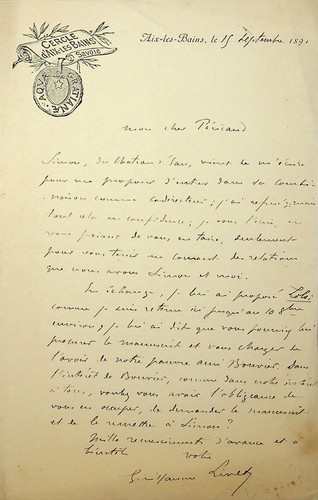 CERCLE
D'AIX-LES-BAINS
Savoie
AQVÆ GRATIANÆ
Aix-les-Bains, le 15 Septembre 189
mon cher Péricaud
Simon, des Variétés, vient de m'écrire
pour me proposer d'entrer dans sa combi-
naison comme codirecteur; j'ai refusé, mais
tout cela en confidence; je vous l'écris, en
vous priant de vous en taire, seulement
pour vous tenir au courant des relations
que nous avons Simon et moi.
En échange, je lui ai proposé
comme je suis retenu ici jusqu'au 10 8bre
environ, je lui ai dit que vous pourriez lui
procurer le manuscrit et vous charger de
l'avoir de notre pauvre ami Bouvier. Dans
l'intérêt de Bouvier, comme dans notre intérêt
à tous, voulez vous avoir l'obligeance de
vous en occuper, de demander le manuscrit
et de le remettre à Simon?
Mille remerciements d'avance et à
bientôt votre
Guillaume Livet